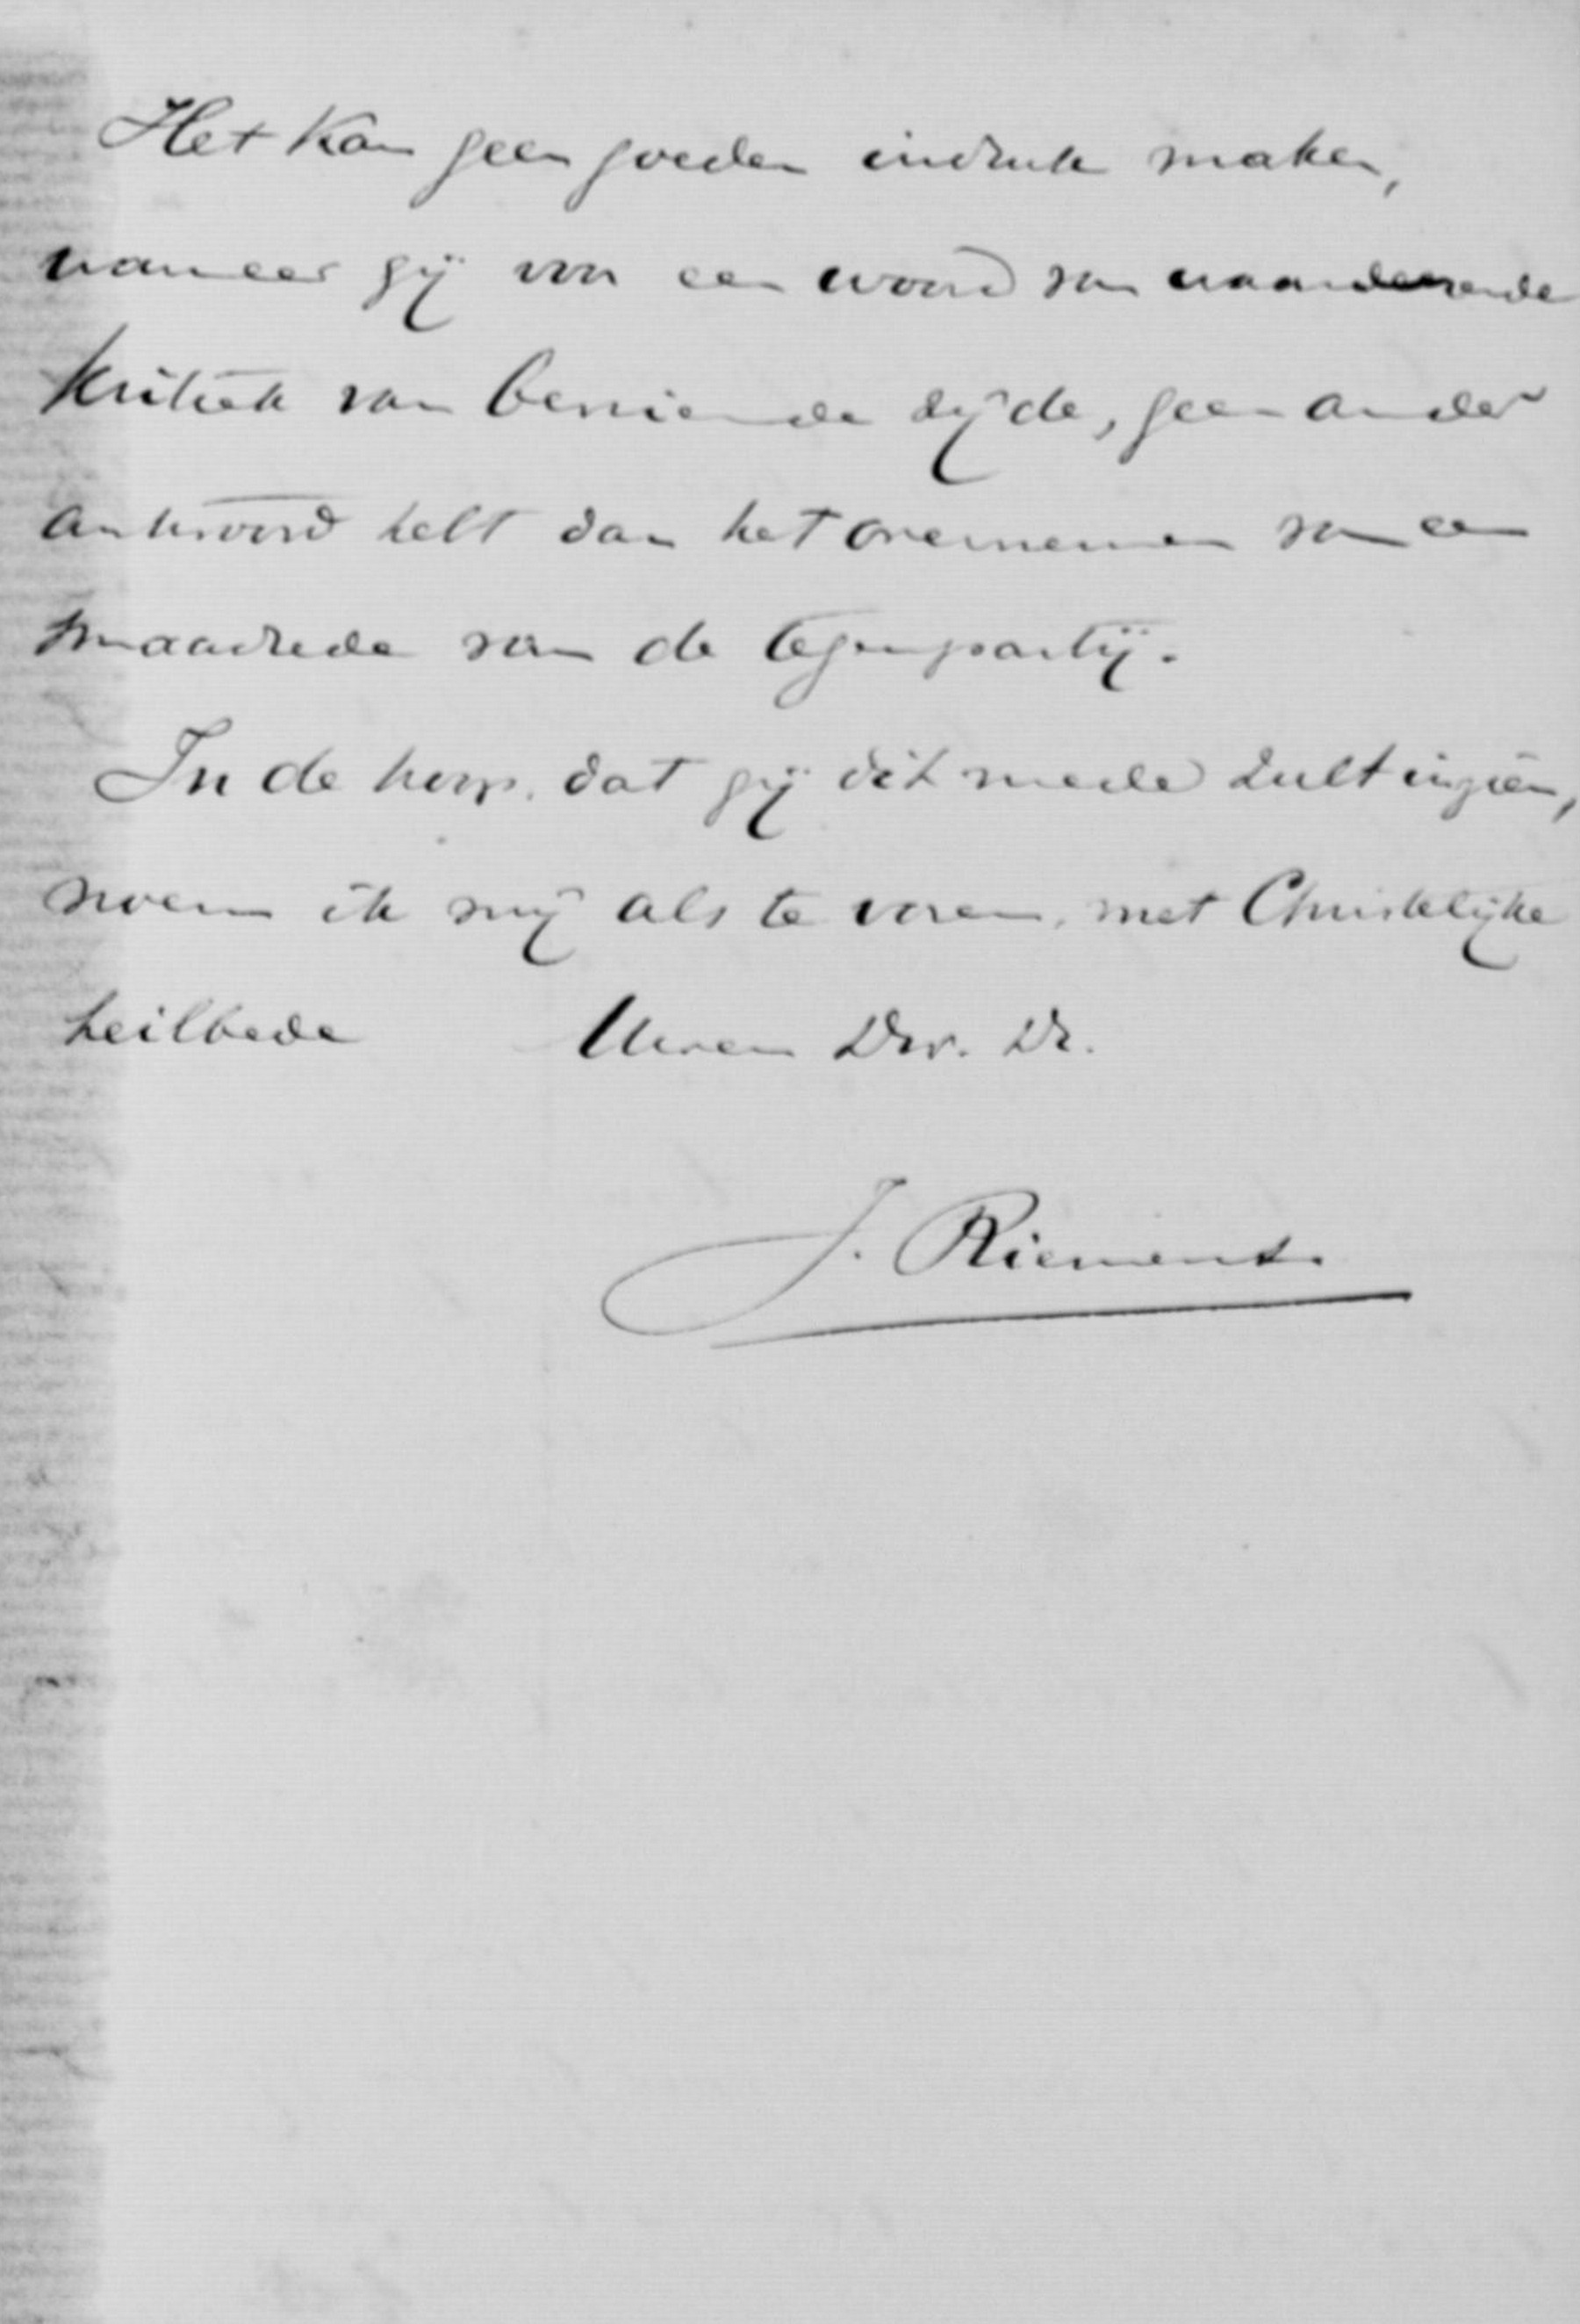 Het kan geen goeden indruk maken,
wanneer gij voor een woord van waardeerende
kritiek van bevriende zijde, geen ander
antwoord hebt dan het overnemen van een
smaadrede van de tegenpartij.
In de hoop, dat gij dit mede zult inzien,
noem ik mij als te voren, met Christelijke
heilbede Uwen Dw. Dr.
J. Riemens.